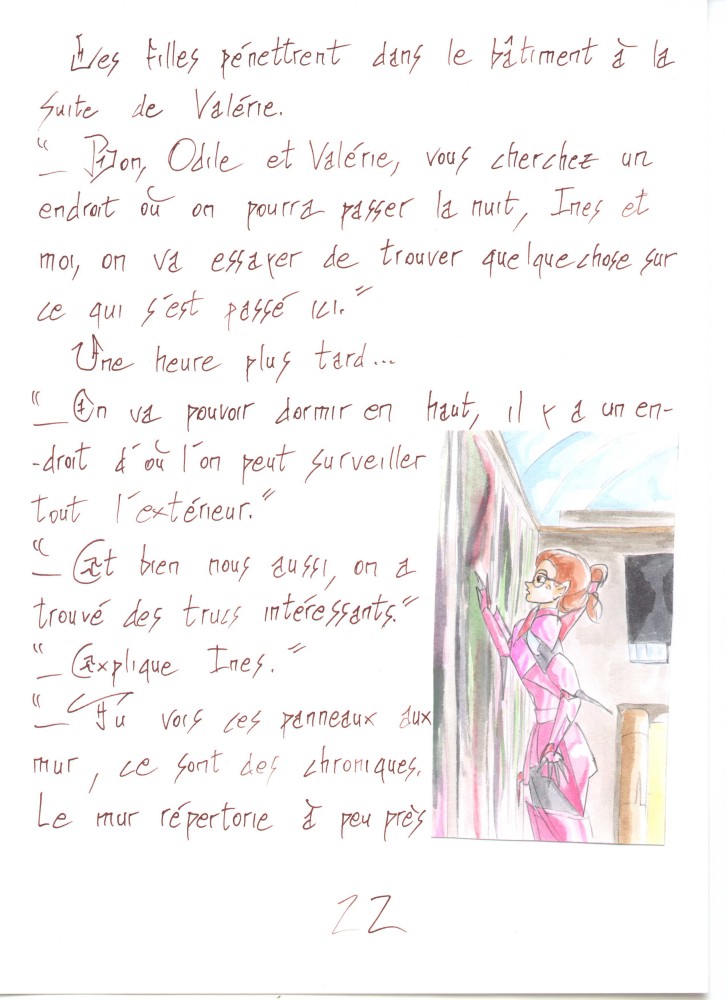 Les filles pénettrent dans le bâtiment à la
suite de Valérie.
"_ Bon, Odile et Valérie, vous cherchez un
endroit où on pourra passer la nuit, Ines et
moi, on va essayer de trouver quelque chose sur
ce qui s'est passé ici."
Une heure plus tard...
"_ On va pouvoir dormir en haut, il y a un en-
-droit d'où l'on peut surveiller
tout l'extérieur."
"_ Et bien nous aussi, on a
trouvé des trucs intéressants."
"_ Explique Ines."
"_ Tu vois ces panneaux aux
mur, ce sont des chroniques.
Le mur répertorie à peu près
22